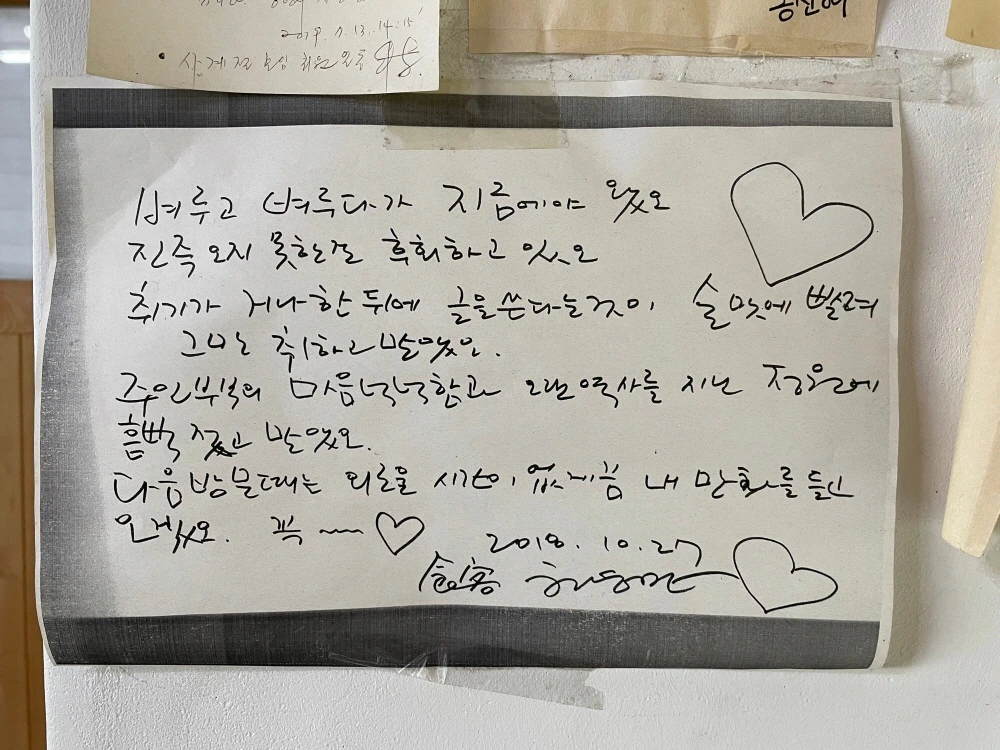 2019. 7. 13. 14:15'
벼루고 벼루다가 지금에야 왔오
진즉 오지 못한걸 후회하고 있오
취기가 거나한 뒤에 글을쓴다는것이 술맛에 빨려
그만 취하고 말았오.
주인부부의 마음넉넉함과 오랜역사를 지닌 정원에
흠뻑 젖고 말았오.
다음방문때는 외로울 시간이 없게끔 내 만화를 들고
오겠오. 꼭
2018. 10. 27